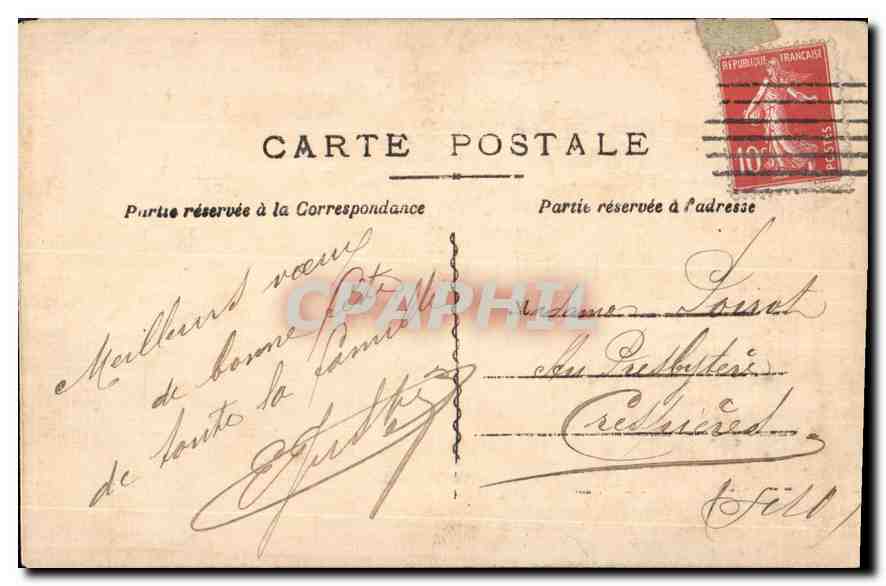 REPUBLIQUE FRANÇAISE
10c
POSTES
CARTE POSTALE
Partie réservée à la Correspondance
Partie réservée à l'adresse
Meilleurs vœux
de bonne fête
de toute la famille
CPAPHIL
Madame Loirot
Au Presbytère
Crespières
(S et O)